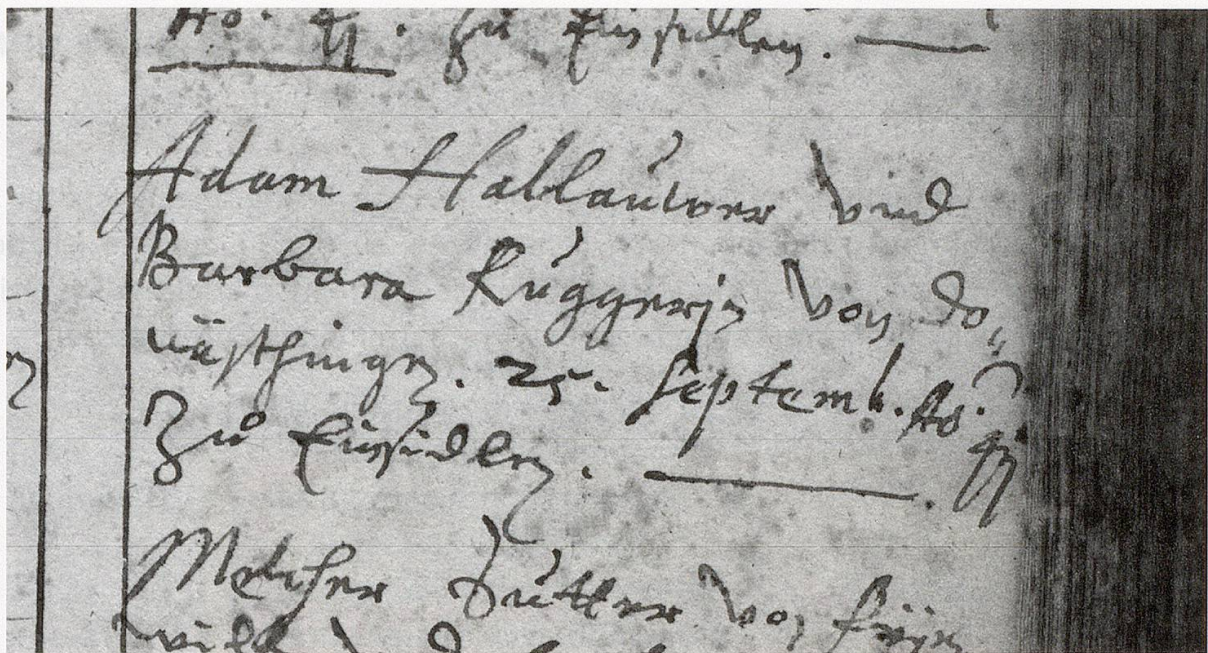 Ao. 91. Zu Einsidlen. —
Adam Hallauwer vnd
Barbara Ruggerin von Do„
nästhingen. 25. Septemb. Ao. 91
Zu Einsidlen. —.
Melcher Sutter von